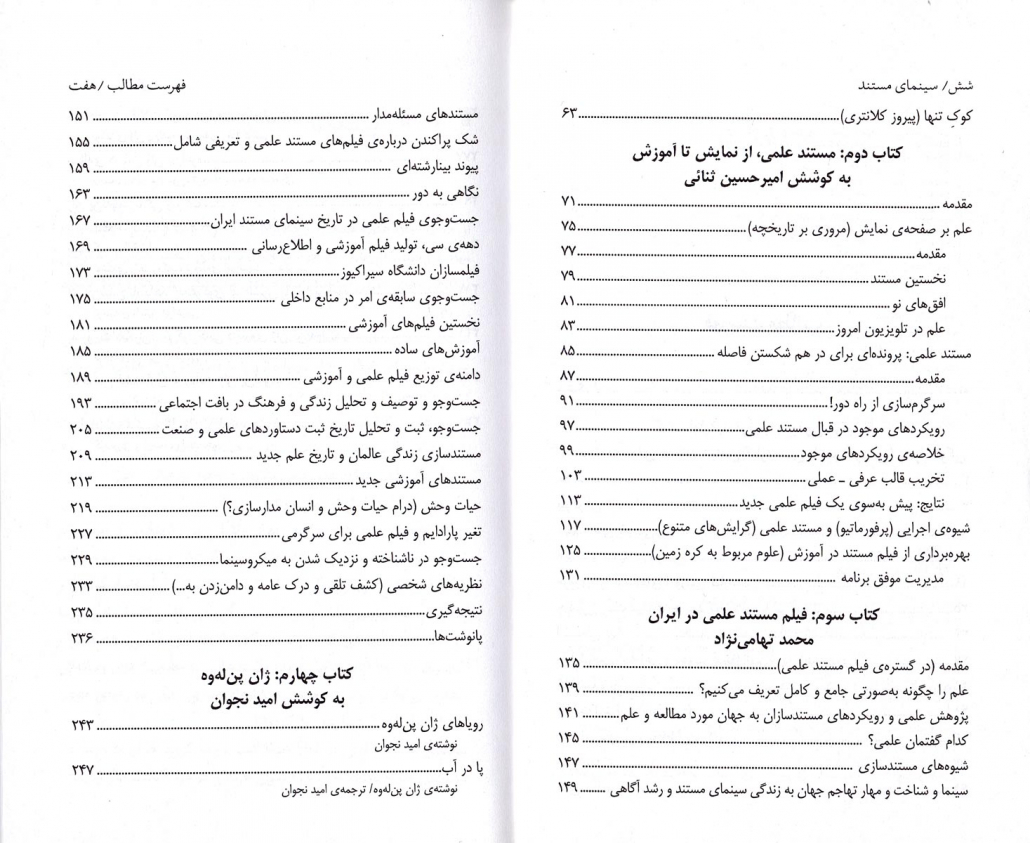 شش/ سینمای مستند
کوکِ تنها (پیروز کلانتری)........۶۳
کتاب دوم: مستند علمی، از نمایش تا آموزش
به کوشش امیرحسین ثنائی
مقدمه........۷۱
علم بر صفحه‌ی نمایش (مروری بر تاریخچه)........۷۵
مقدمه........۷۷
نخستین مستند........۷۹
افق‌های نو........۸۱
علم در تلویزیون امروز........۸۳
مستند علمی: پرونده‌ای برای در هم شکستن فاصله........۸۵
مقدمه........۸۷
سرگرم‌سازی از راه دور!........۹۱
رویکردهای موجود در قبال مستند علمی........۹۷
خلاصه‌ی رویکردهای موجود........۹۹
تخریب قالب عرفی ـ عملی........۱۰۳
نتایج: پیش به‌سوی یک فیلم علمی جدید........۱۱۳
شیوه‌ی اجرایی (پرفورماتیو) و مستند علمی (گرایش‌های متنوع)........۱۱۷
بهره‌برداری از فیلم مستند در آموزش (علوم مربوط به کره زمین)........۱۲۵
مدیریت موفق برنامه........۱۳۱
کتاب سوم: فیلم مستند علمی در ایران
محمد تهامی‌نژاد
مقدمه (در گستره‌ی فیلم مستند علمی)........۱۳۵
علم را چگونه به‌صورتی جامع و کامل تعریف می‌کنیم؟........۱۳۹
پژوهش علمی و رویکردهای مستندسازان به جهان مورد مطالعه و علم........۱۴۱
کدام گفتمان علمی؟........۱۴۵
شیوه‌های مستندسازی........۱۴۷
سینما و شناخت و مهار تهاجم جهان به زندگی سینمای مستند و رشد آگاهی........۱۴۹
فهرست مطالب /هفت
مستندهای مسئله‌مدار........۱۵۱
شک پراکندن درباره‌ی فیلم‌های مستند علمی و تعریفی شامل........۱۵۵
پیوند بینارشته‌ای........۱۵۹
نگاهی به دور........۱۶۳
جست‌وجوی فیلم علمی در تاریخ سینمای مستند ایران........۱۶۷
دهه‌ی سی، تولید فیلم آموزشی و اطلاع‌رسانی........۱۶۹
فیلمسازان دانشگاه سیراکیوز........۱۷۳
جست‌وجوی سابقه‌ی امر در منابع داخلی........۱۷۵
نخستین فیلم‌های آموزشی........۱۸۱
آموزش‌های ساده........۱۸۵
دامنه‌ی توزیع فیلم علمی و آموزشی........۱۸۹
جست‌وجو و توصیف و تحلیل زندگی و فرهنگ در بافت اجتماعی........۱۹۳
جست‌وجو، ثبت و تحلیل تاریخ ثبت دستاوردهای علمی و صنعت........۲۰۵
مستندسازی زندگی عالمان و تاریخ علم جدید........۲۰۹
مستندهای آموزشی جدید........۲۱۳
حیات وحش (درام حیات وحش و انسان مدارسازی؟)........۲۱۹
تغیر پارادایم و فیلم علمی برای سرگرمی........۲۲۷
جست‌وجو در ناشناخته و نزدیک شدن به میکروسینما........۲۲۹
نظریه‌های شخصی (کشف تلقی و درک عامه و دامن‌زدن به...)........۲۳۳
نتیجه‌گیری........۲۳۵
پانوشت‌ها........۲۳۶
کتاب چهارم: ژان پن‌له‌وه
به کوشش امید نجوان
رویاهای ژان پن‌له‌وه........۲۴۳
نوشته‌ی امید نجوان
پا در آب........۲۴۷
نوشته‌ی ژان پن‌له‌وه/ ترجمه‌ی امید نجوان